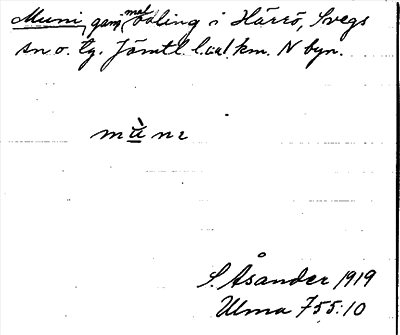 Muni, gammal odling i Härrö, Svegs
sn o. tg. Jämtl. l. ca 1 km. N byn.
mùnɩ
S. Åsander 1919
Ulma 755:10